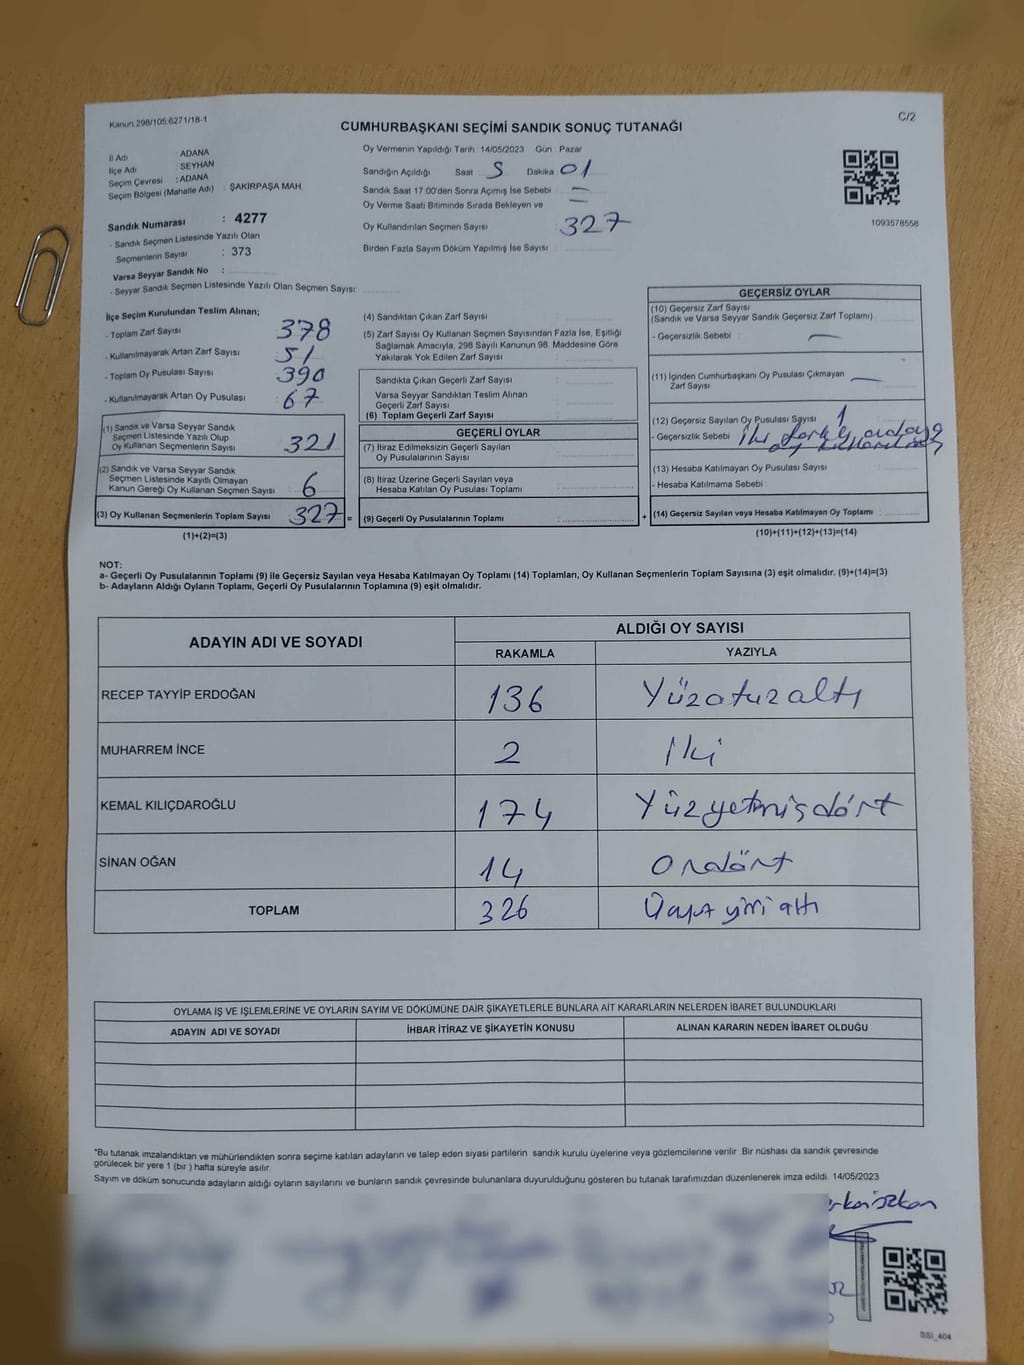 Kanun 298/105.6271/18-1
C/2
CUMHURBAŞKANI SEÇİMİ SANDIK SONUÇ TUTANAĞI
İl Adı : ADANA
İlçe Adı : SEYHAN
Seçim Çevresi : ADANA
Seçim Bölgesi (Mahalle Adı) : ŞAKİRPAŞA MAH.
Sandık Numarası : 4277
- Sandık Seçmen Listesinde Yazılı Olan
Seçmenlerin Sayısı : 373
Varsa Seyyar Sandık No :
- Seyyar Sandık Seçmen Listesinde Yazılı Olan Seçmen Sayısı:
Oy Vermenin Yapıldığı Tarih :14/05/2023 Gün : Pazar
Sandığın Açıldığı Saat 5 Dakika 01
Sandık Saat 17:00'den Sonra Açımış İse Sebebi : -
Oy Verme Saati Bitiminde Sırada Bekleyen ve
Oy Kullandırılan Seçmen Sayısı : 327
Birden Fazla Sayım Döküm Yapılmış İse Sayısı :
1093578558
İlçe Seçim Kurulundan Teslim Alınan;
- Toplam Zarf Sayısı 378
- Kullanılmayarak Artan Zarf Sayısı 51
- Toplam Oy Pusulası Sayısı 390
- Kullanılmayarak Artan Oy Pusulası 67
(1) Sandık ve Varsa Seyyar Sandık
Seçmen Listesinde Yazılı Olup
Oy Kullanan Seçmenlerin Sayısı 321
(2) Sandık ve Varsa Seyyar Sandık
Seçmen Listesinde Kayıtlı Olmayan
Kanun Gereği Oy Kullanan Seçmen Sayısı 6
(3) Oy Kullanan Seçmenlerin Toplam Sayısı 327 =
(1)+(2)=(3)
(4) Sandıktan Çıkan Zarf Sayısı :
(5) Zarf Sayısı Oy Kullanan Seçmen Sayısından Fazla İse, Eşitliği
Sağlamak Amacıyla, 298 Sayılı Kanunun 98. Maddesine Göre
Yakılarak Yok Edilen Zarf Sayısı :
Sandıkta Çıkan Geçerli Zarf Sayısı :
Varsa Seyyar Sandıktan Teslim Alınan
Geçerli Zarf Sayısı :
(6) Toplam Geçerli Zarf Sayısı :
GEÇERLİ OYLAR
(7) İtiraz Edilmeksizin Geçerli Sayılan
Oy Pusulalarının Sayısı :
(8) İtiraz Üzerine Geçerli Sayılan veya
Hesaba Katılan Oy Pusulası Toplamı :
(9) Geçerli Oy Pusulalarının Toplamı : +
GEÇERSİZ OYLAR
(10) Geçersiz Zarf Sayısı
(Sandık ve Varsa Seyyar Sandık Geçersiz Zarf Toplamı) :
- Geçersizlik Sebebi : —
(11) İçinden Cumhurbaşkanı Oy Pusulası Çıkmayan
Zarf Sayısı : —
(12) Geçersiz Sayılan Oy Pusulası Sayısı : 1
- Geçersizlik Sebebi : iki farklı adaya
oy kullanılmış
(13) Hesaba Katılmayan Oy Pusulası Sayısı :
- Hesaba Katılmama Sebebi :
(14) Geçersiz Sayılan veya Hesaba Katılmayan Oy Toplamı :
(10)+(11)+(12)+(13)=(14)
NOT:
a- Geçerli Oy Pusulalarının Toplamı (9) ile Geçersiz Sayılan veya Hesaba Katılmayan Oy Toplamı (14) Toplamları, Oy Kullanan Seçmenlerin Toplam Sayısına (3) eşit olmalıdır. (9)+(14)=(3)
b- Adayların Aldığı Oyların Toplamı, Geçerli Oy Pusulalarının Toplamına (9) eşit olmalıdır.
ADAYIN ADI VE SOYADI
ALDIĞI OY SAYISI
RAKAMLA YAZIYLA
RECEP TAYYİP ERDOĞAN 136 Yüzotuzaltı
MUHARREM İNCE 2 İki
KEMAL KILIÇDAROĞLU 174 Yüzyetmişdört
SİNAN OĞAN 14 Ondört
TOPLAM 326 Üçyüz yirmi altı
OYLAMA İŞ VE İŞLEMLERİNE VE OYLARIN SAYIM VE DÖKÜMÜNE DAİR ŞİKAYETLERLE BUNLARA AİT KARARLARIN NELERDEN İBARET BULUNDUKLARI
ADAYIN ADI VE SOYADI İHBAR İTİRAZ VE ŞİKAYETİN KONUSU ALINAN KARARIN NEDEN İBARET OLDUĞU
"Bu tutanak imzalandıktan ve mühürlendikten sonra seçime katılan adayların ve talep eden siyasi partilerin sandık kurulu üyelerine veya gözlemcilerine verilir. Bir nüshası da sandık çevresinde
görülecek bir yere 1 (bir ) hafta süreyle asılır.
Sayım ve döküm sonucunda adayların aldığı oyların sayılarını ve bunların sandık çevresinde bulunanlara duyurulduğunu gösteren bu tutanak tarafımızdan düzenlenerek imza edildi. 14/05/2023
SSI_404